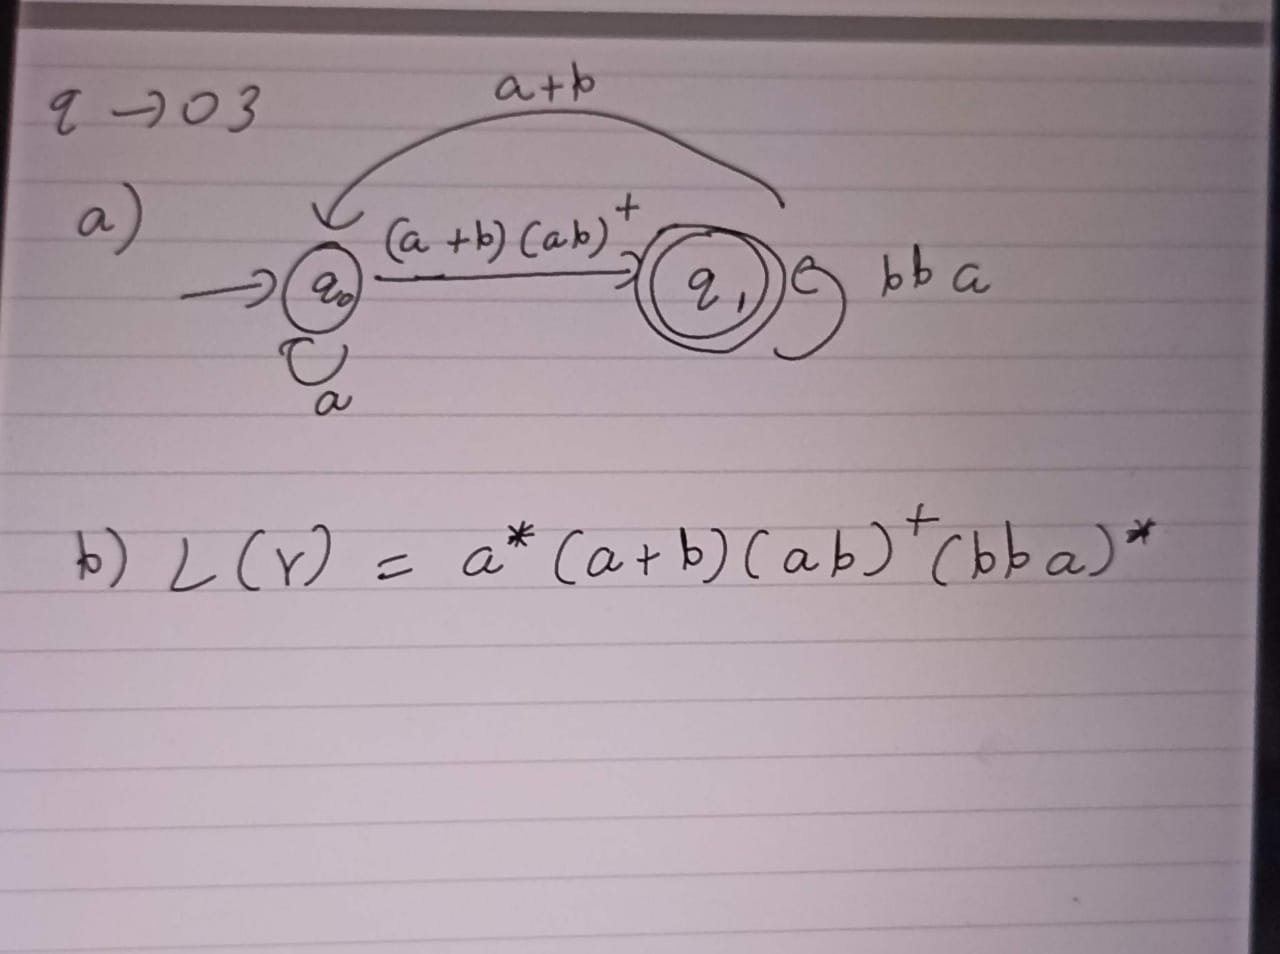 q → 03
a+b
a)
(a+b)(ab)⁺
q₀
q₁
bba
a
b) L(r) = a*(a+b)(ab)⁺(bba)*